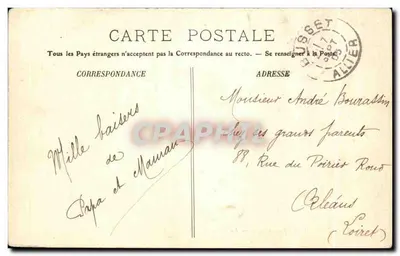 CARTE POSTALE
Tous les Pays étrangers n'acceptent pas la Correspondance au recto. — Se renseigner à la Poste
CORRESPONDANCE
ADRESSE
BUSSET
ALLIER
Mille baisers
de
Papa et Maman
Monsieur André
chez ses grands parents
88, Rue du Poirier Rond
Orléans
(Loiret)
CPAPHIL